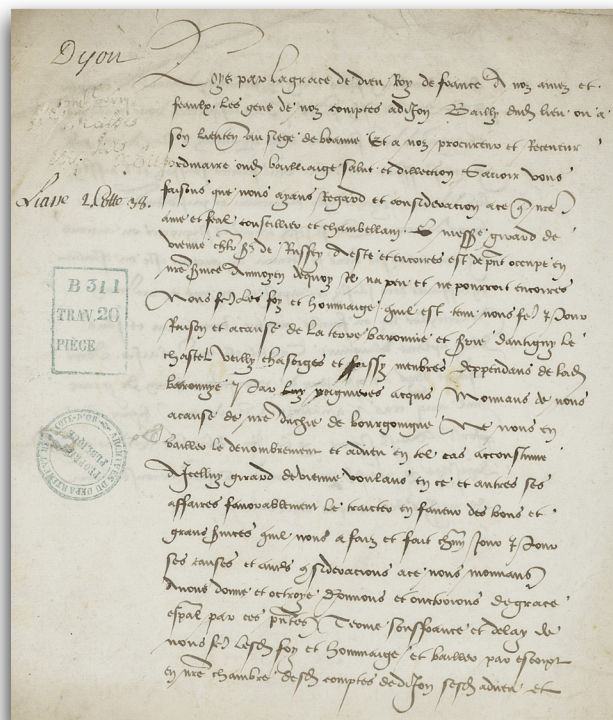 Dyon
Loys par la grace de dieu Roy de france A noz amez et
feaulx les gens de noz comptes a diJon Bailly dud lieu ou a
son lieuten au siege de beaune Et a noz procureur et Receueur
ordinaire oud bailliaige salut et dillection Sauoir vous
faisons que nous ayans Regard et consideracion a ce q nre
Liasse 2. Cotte 38.
ame et feal conseillier et chambellain messe girard de
vienne chlr sr de Ruffey a este et encores est de pnt occupe en
nre seruice au moyen dequoy Il na peu et ne pourroit encores
B 311
TRAV. 20
PIÈCE
Nous fe les foy et hommaige quil est tenu nous fe Pour
Raison et a cause de la terre baronnie et srie dantigny le
chastel veilly chaserges et foissy membres deppendans de lad
baronnye Par luy acquis Mouuans de nous
a cause de nre duchie de bourgoingne Ne nous en
bailler le denombrement et adueu en tel cas acoustume
ARCHIVES DU DÉPARTEMENT DE LA COTE-D'OR
PROPRIÉTÉ PUBLIQUE
A Icelluy girard de vienne voulans en ce et autres ses
affaires fauorablement le traicter en faueur des bons et
grans seruices quil nous a faiz et fait chun Jour Pour
ses causes et autres qsideracions a ce nous mouuans
Auons donne et octroye Donnons et octroyons de grace
espal par ces pntes Terme souffrance et delay de
nous fe lesd foy et hommaige et bailler par escript
en nre chambre desd comptes de diJon sesd adueu et